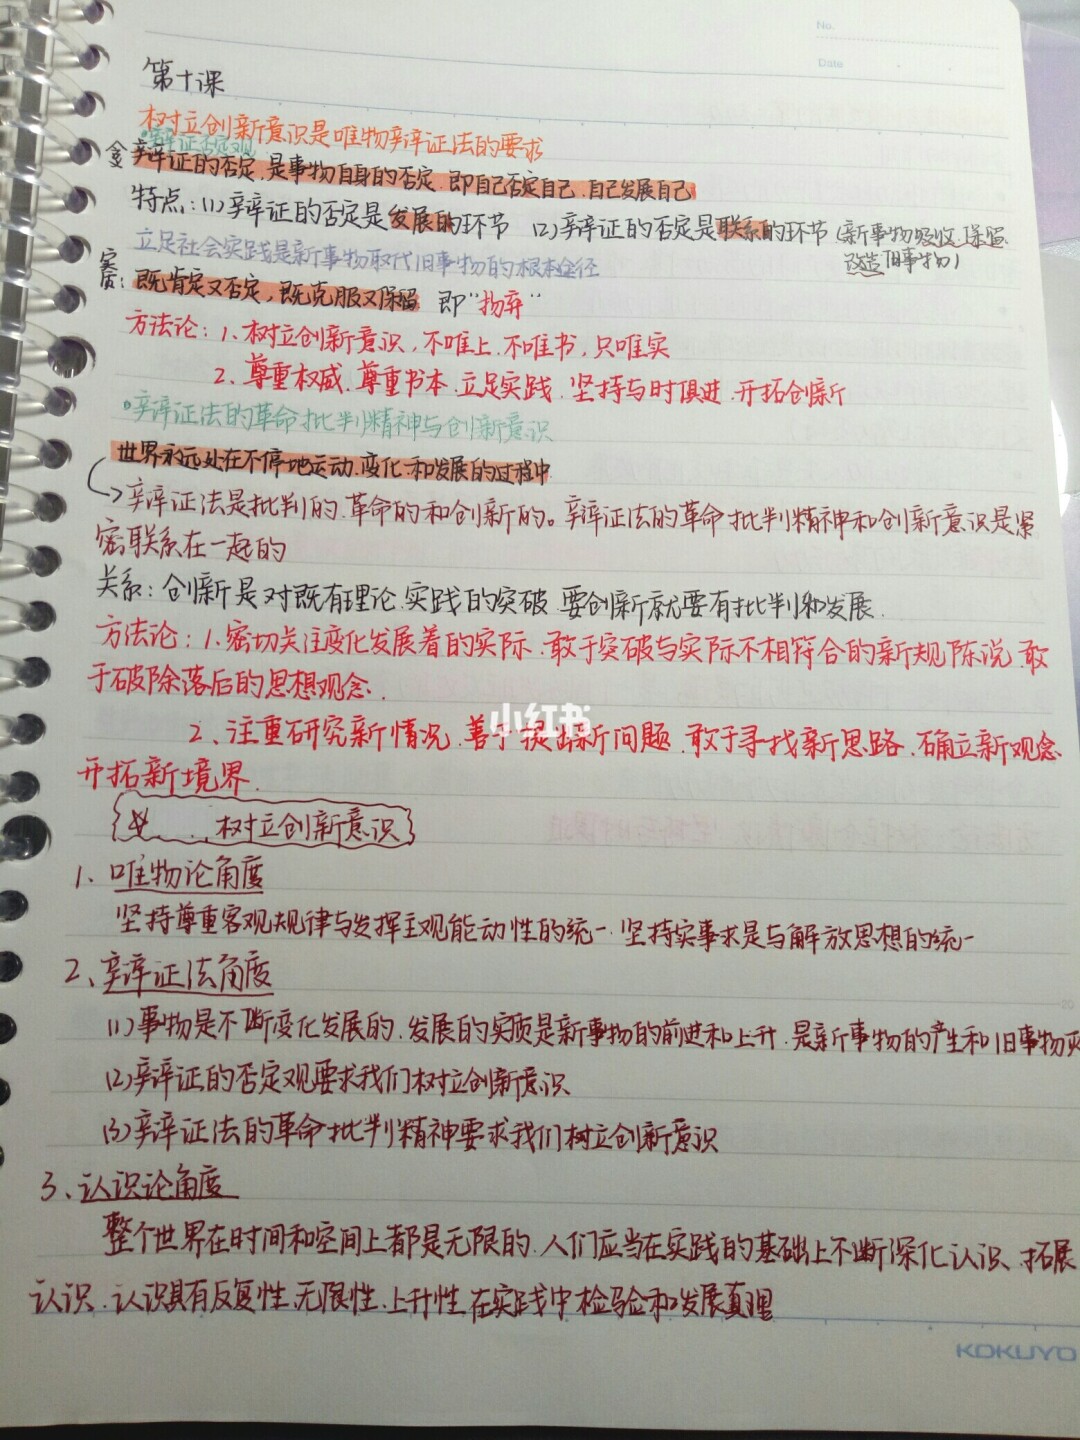 No.
Date
第十课
树立创新意识是唯物辩证法的要求
辩证否定观
含义 辩证的否定,是事物自身的否定.即自己否定自己.自己发展自己
特点:(1)辩证的否定是发展的环节 (2)辩证的否定是联系的环节(新事物吸收.保留.
改造旧事物)
立足社会实践是新事物取代旧事物的根本途径
实质:既肯定又否定,既克服又保留 即"扬弃"
方法论:1、树立创新意识,不唯上.不唯书,只唯实
2、尊重权威.尊重书本.立足实践.坚持与时俱进.开拓创新
•辩证法的革命批判精神与创新意识
世界永远处在不停地运动.变化和发展的过程中
→辩证法是批判的.革命的和创新的。辩证法的革命批判精神和创新意识是紧
密联系在一起的
关系:创新是对既有理论.实践的突破.要创新就要有批判和发展.
方法论:1.密切关注变化发展着的实际.敢于突破与实际不相符合的新规陈说.敢
于破除落后的思想观念.
2、注重研究新情况.善于提出新问题.敢于寻找新思路.确立新观念
开拓新境界.
小红书
... 树立创新意识
1、唯物论角度
坚持尊重客观规律与发挥主观能动性的统一.坚持实事求是与解放思想的统一
2、辩证法角度
(1)事物是不断变化发展的.发展的实质是新事物的前进和上升.是新事物的产生和旧事物灭
(2)辩证的否定观要求我们树立创新意识
(3)辩证法的革命批判精神要求我们树立创新意识
3、认识论角度
整个世界在时间和空间上都是无限的.人们应当在实践的基础上不断深化认识.拓展
认识.认识具有反复性、无限性.上升性.在实践中检验和发展真理
KOKUYO